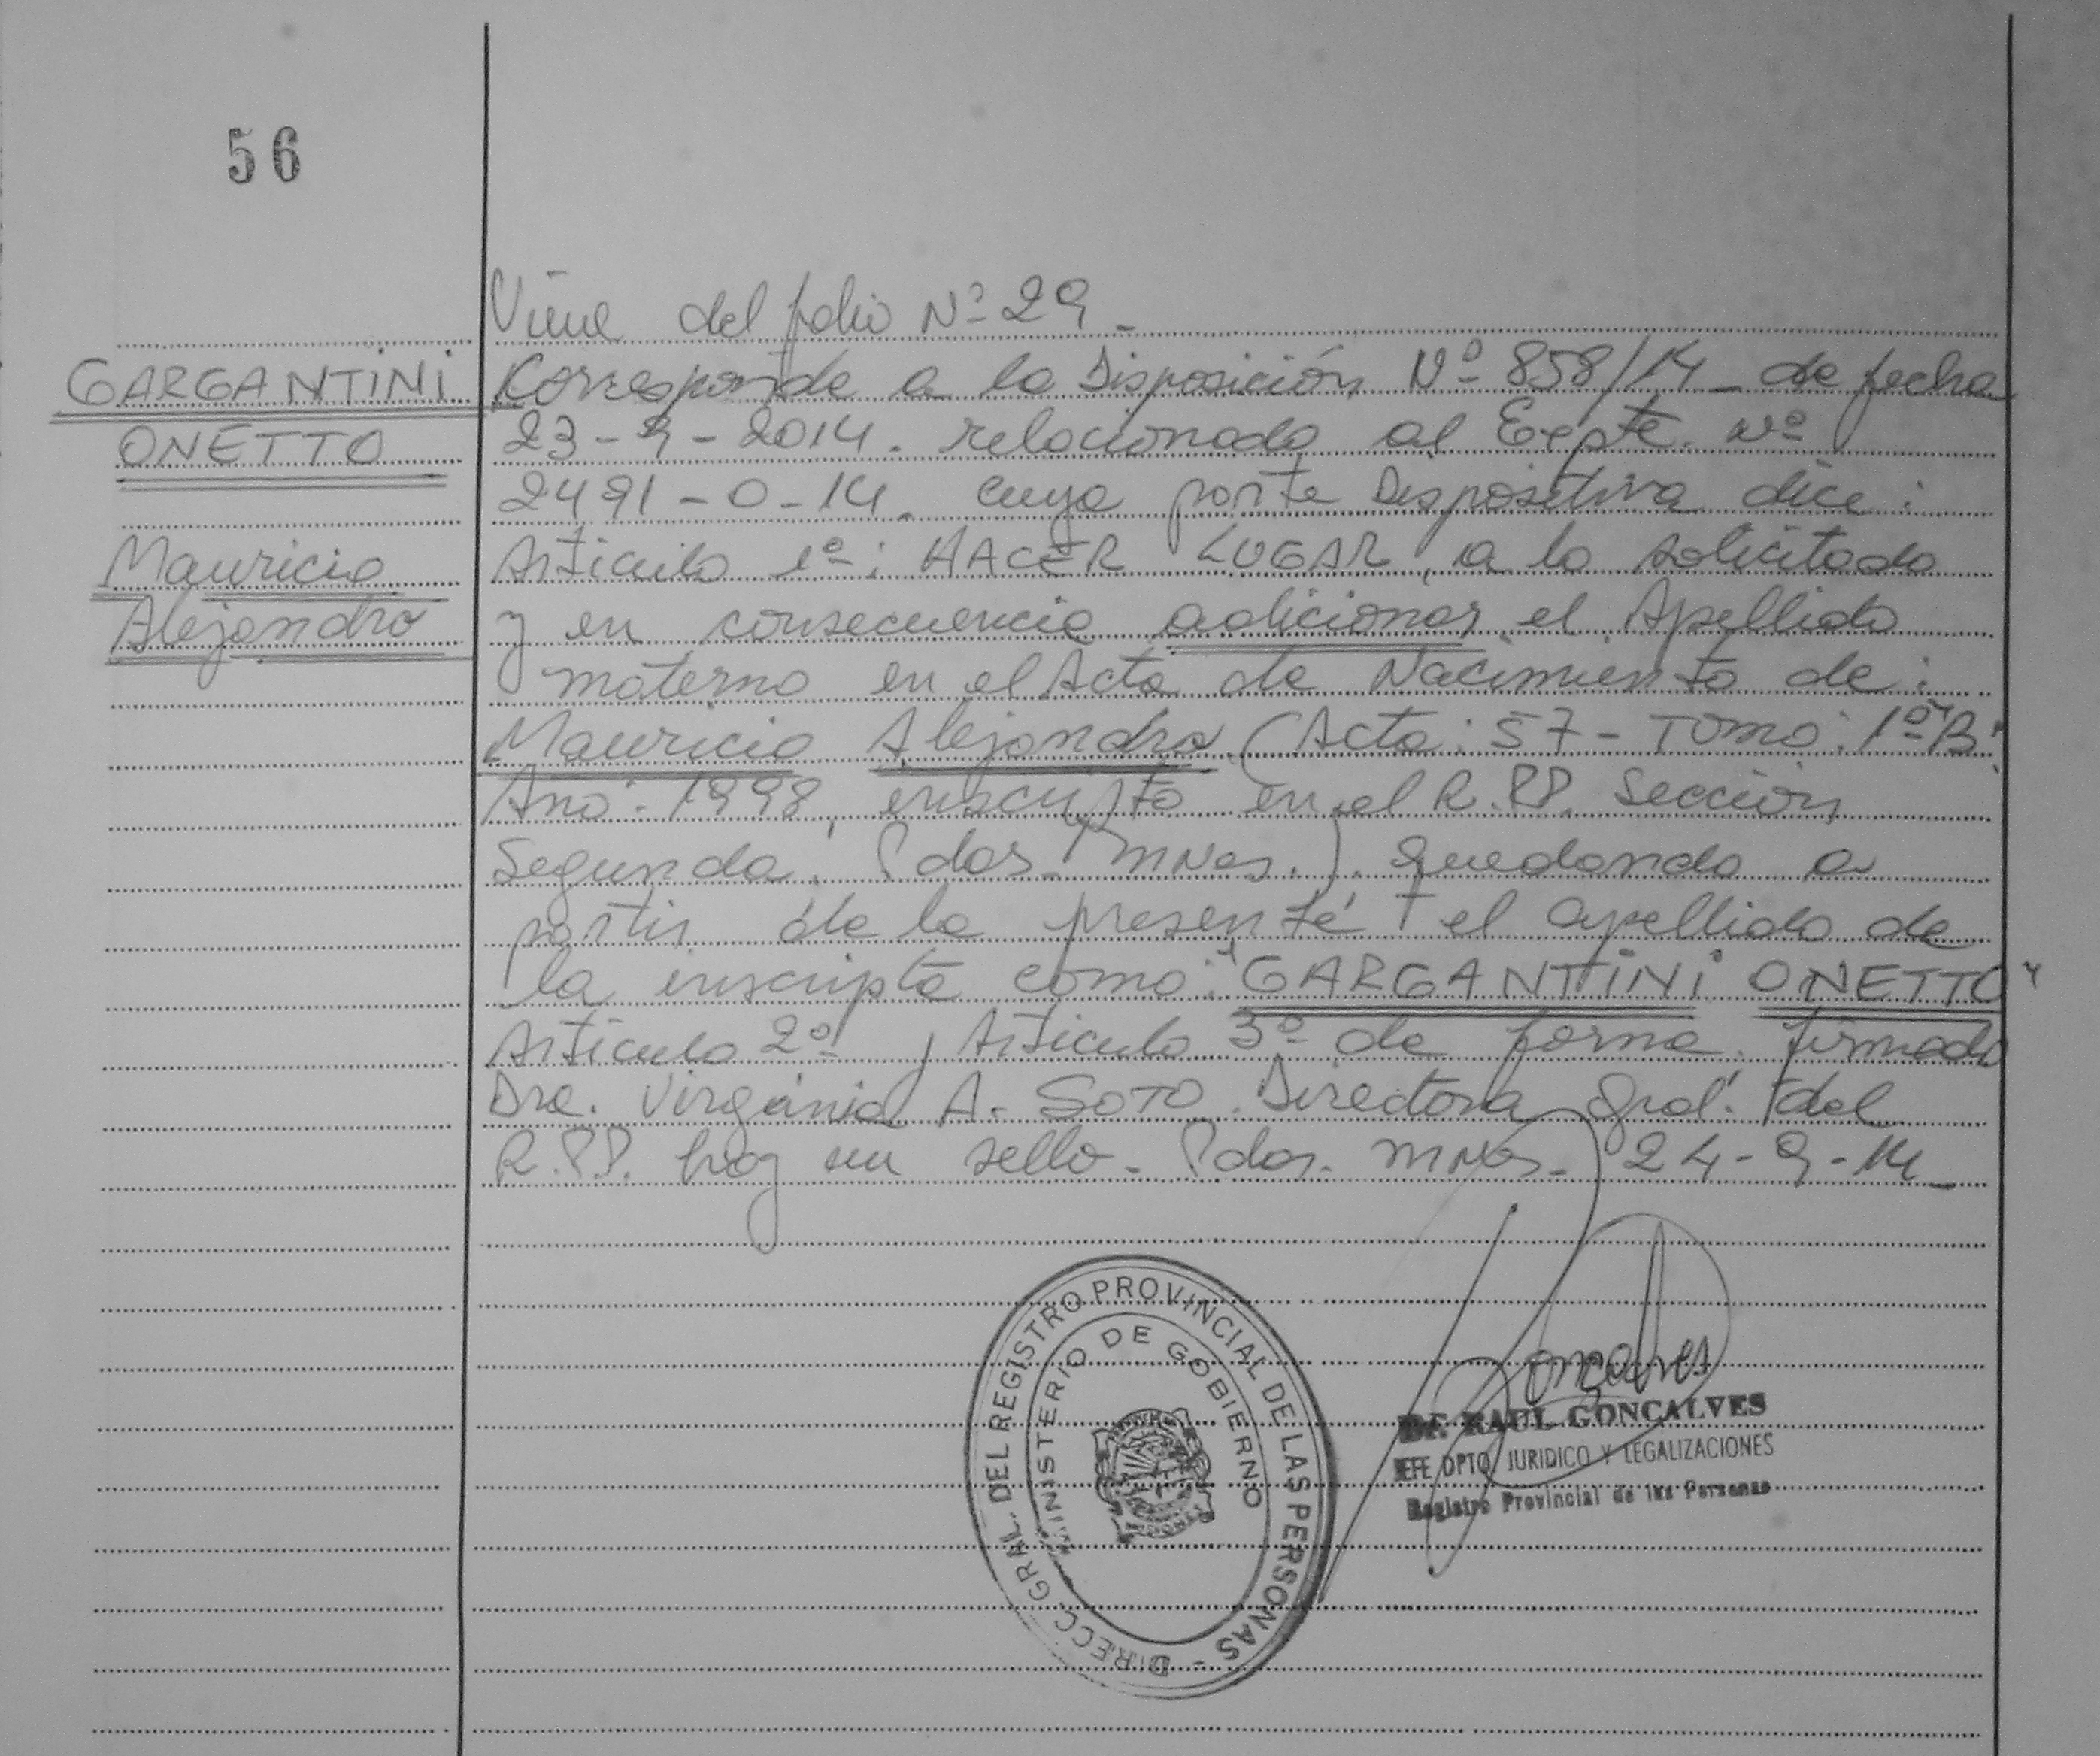 56
Viene del folio Nº 29.
GARGANTINI
ONETTO
Mauricio
Alejandro
Corresponde a la Disposición Nº 858/14 - de fecha
23-9-2014. relacionado al Expte. Nº
2491-0-14. cuya parte Dispositiva dice:
Articulo 1º: HACER LUGAR, a lo solicitado
y en consecuencia adicionar el Apellido
materno en el Acta de Nacimiento de:
Mauricio Alejandro (Acta: 57 - Tomo: 1º "B"
Año: 1998, inscripto en el R.PP. Sección
Segunda. Pdas. Mnes.). quedando a
partir de la presente el apellido de
la inscripta como: "GARGANTINI ONETTO"
Articulo 2º, Articulo 3º de forma. firmado
Dra. Virginia A. SOTO. Directora Gral. del
R.PP. hay un sello. Pdas. Mnes. 24-9-14
DIRECC. GRAL. DEL REGISTRO PROVINCIAL DE LAS PERSONAS -
MINISTERIO DE GOBIERNO
MISIONES
Gonçalves
Dr. RAUL GONÇALVES
JEFE DPTO. JURIDICO Y LEGALIZACIONES
Registro Provincial de las Personas